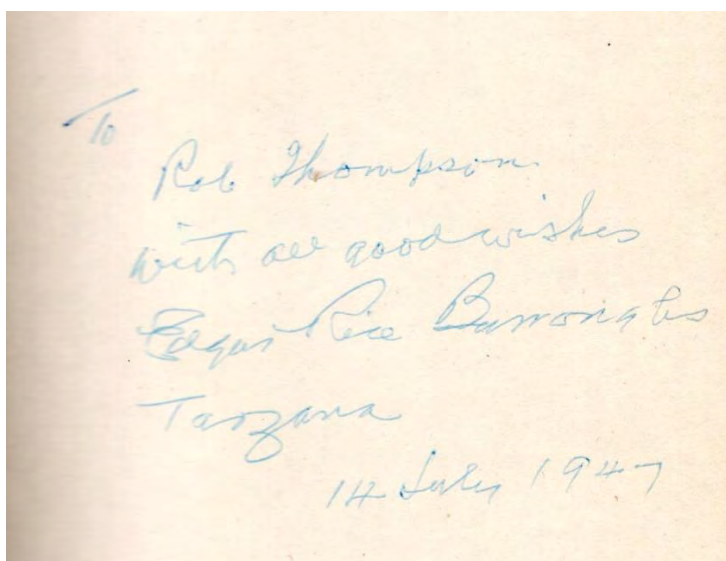 To
Rob Thompson
with all good wishes
Edgar Rice Burroughs
Tarzana
14 July 1947